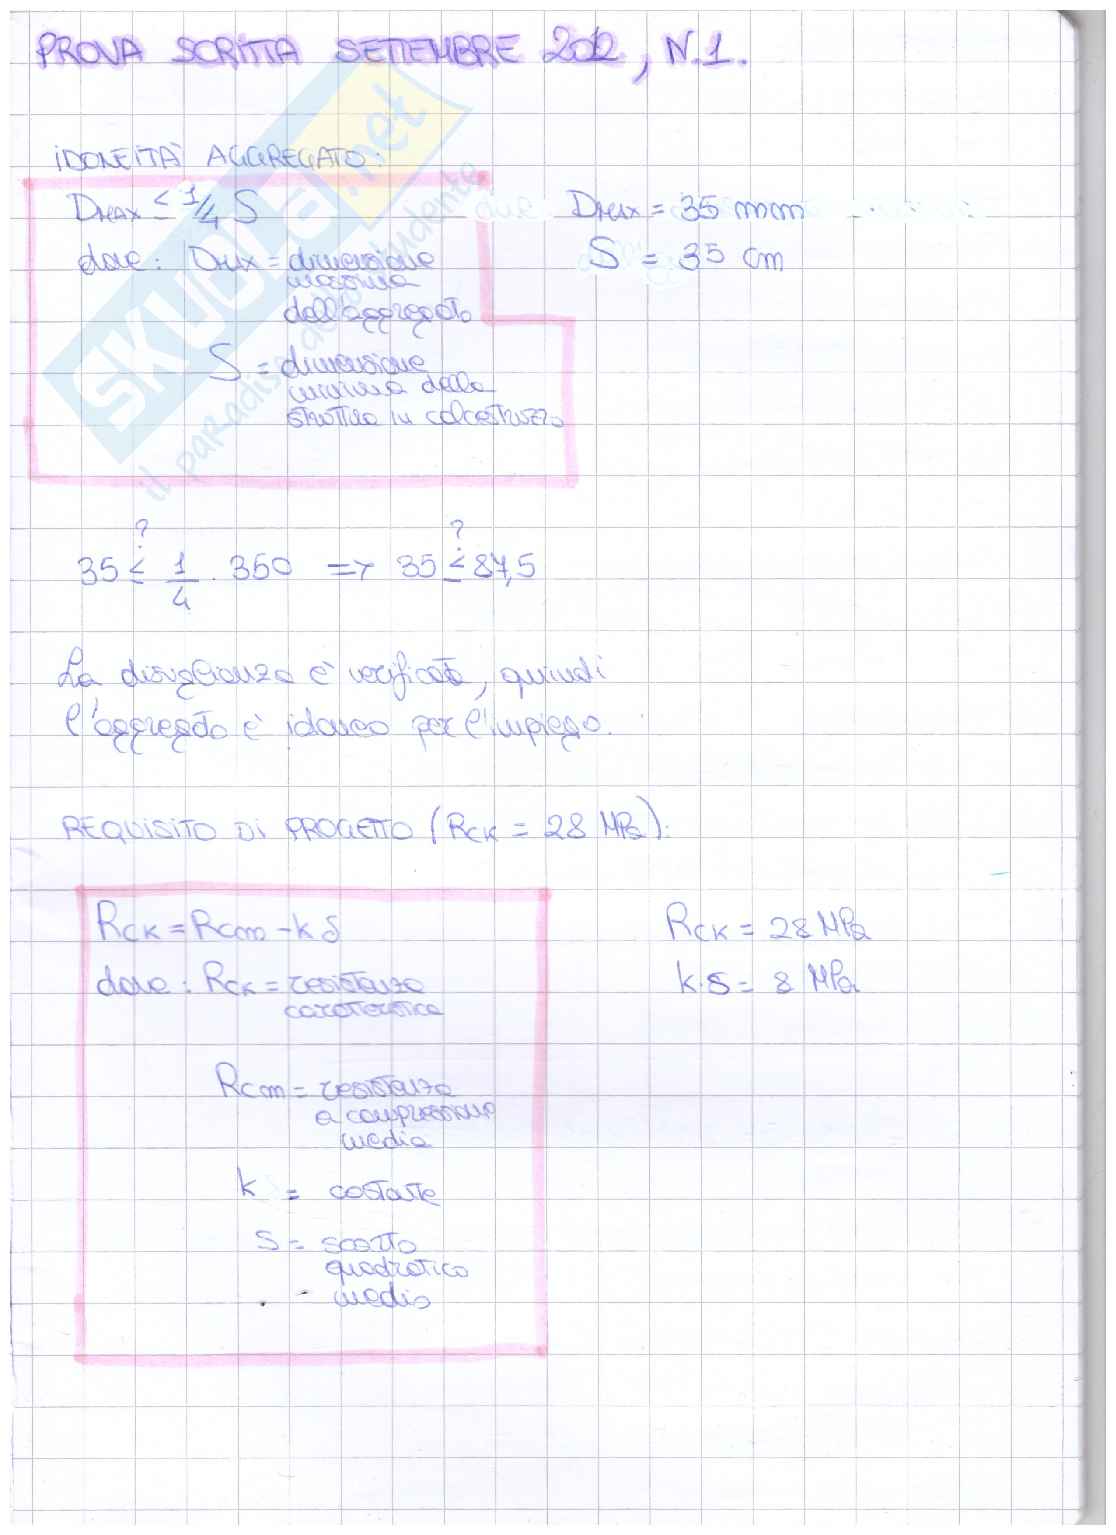 PROVA SCRITTA SETTEMBRE 2012, N.1.
IDONEITÀ AGGREGATO:
DMAX ≤ 1/4 S
DMAX = 35 mm
dove: DMAX = dimensione
massima
dell'aggregato
S = 35 cm
S = dimensione
minima della
struttura in calcestruzzo
35 ≤? 1/4 · 350 => 35 ≤? 87,5
La disuglianza è verificata, quindi
l'aggregato è idoneo per l'impiego.
REQUISITO DI PROGETTO (RCK = 28 MPa):
RCK = RCm - k s
RCK = 28 MPa
dove: RCK = resistenza
caratteristica
k·s = 8 MPa
RCm = resistenza
a compressione
media
k = costante
s = scarto
quadratico
medio
SKUOLA.net
il paradiso dello studente